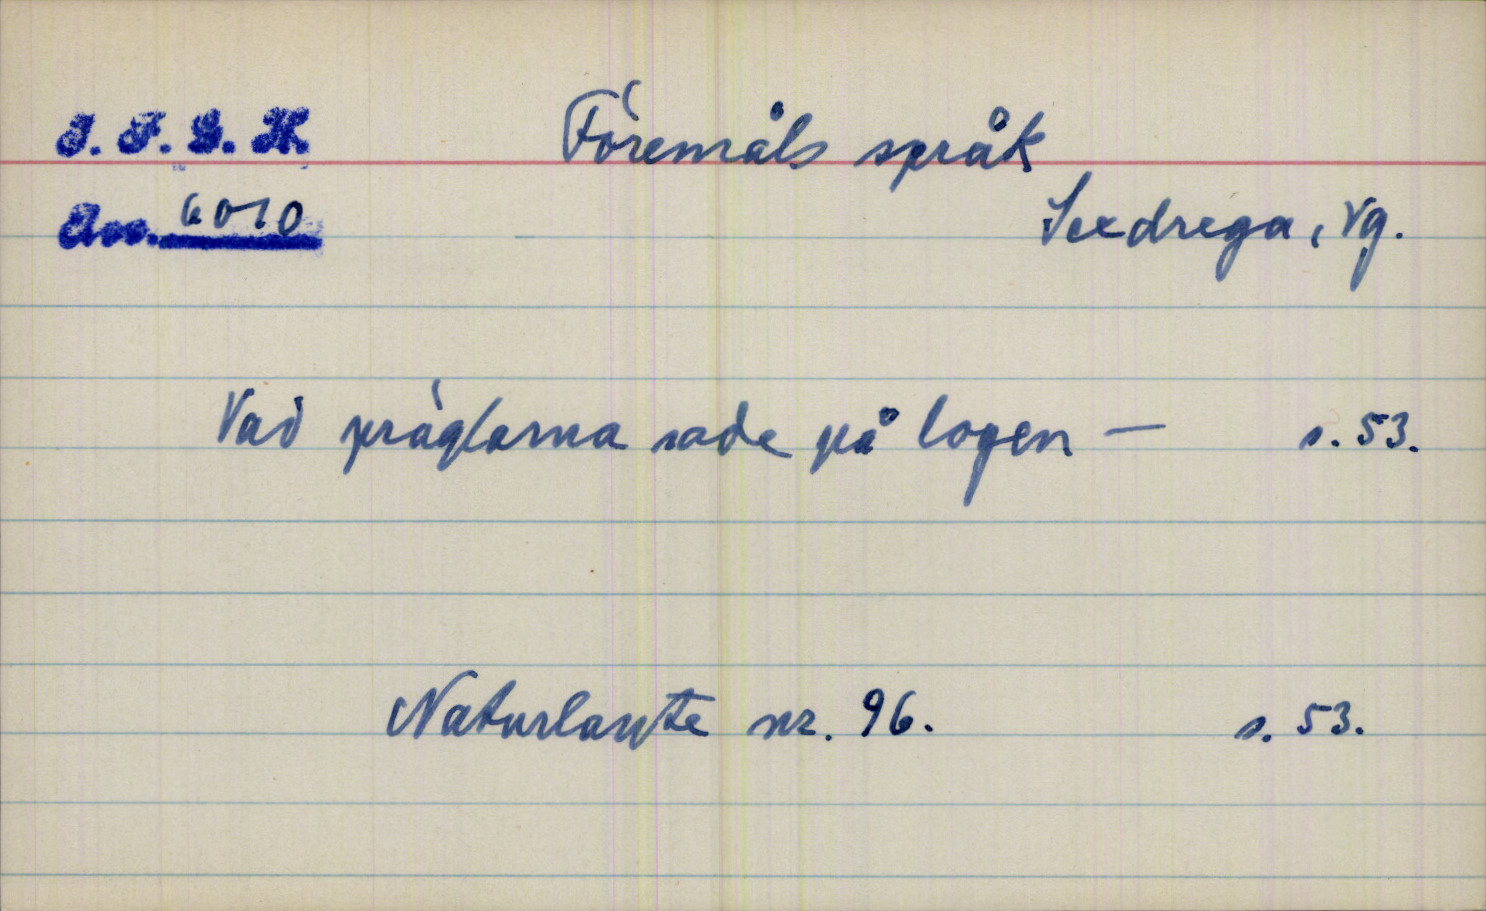 I. F. G. H.
Föremåls språk
Acc. 6010
Sexdrega, Vg.
Vad präglarna sade på logen — s. 53.
Naturlaute nr. 96. s. 53.